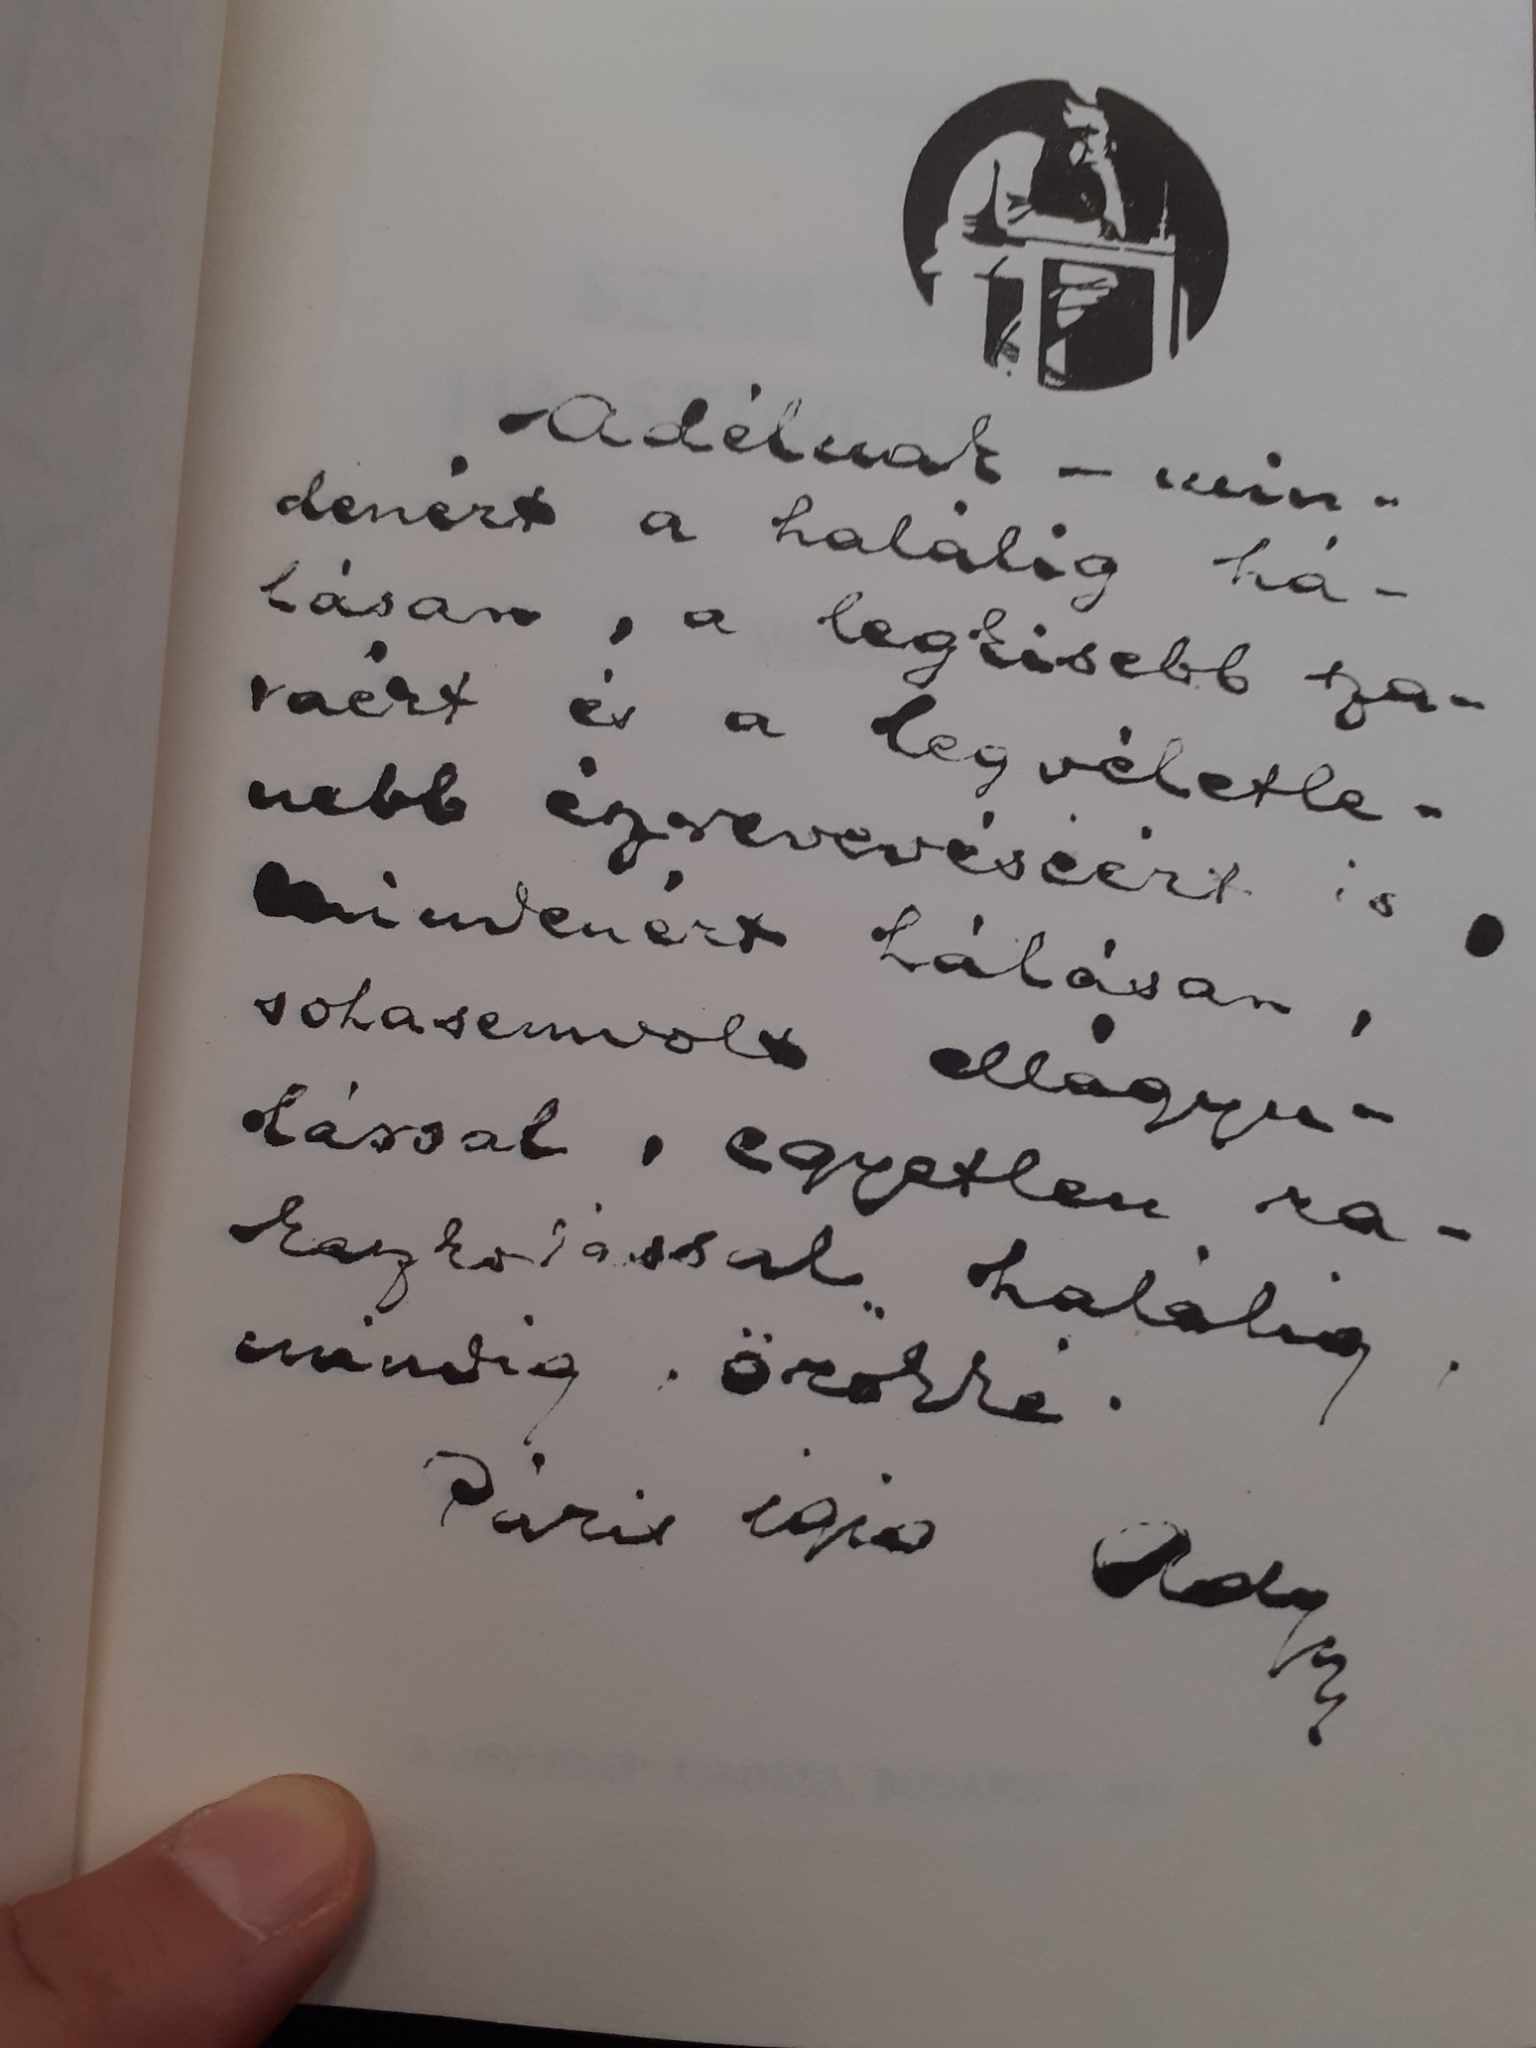 Adélnak – min-
denért a halálig há-
lásan, a legkisebb sza-
váért és a legvéletle-
nebb észrevevéséért is
mindenért hálásan,
sohasemvolt ellágyu-
lással, egyetlen ra-
gaszkodással, halálig,
mindig, örökké.
Páris igio Ady